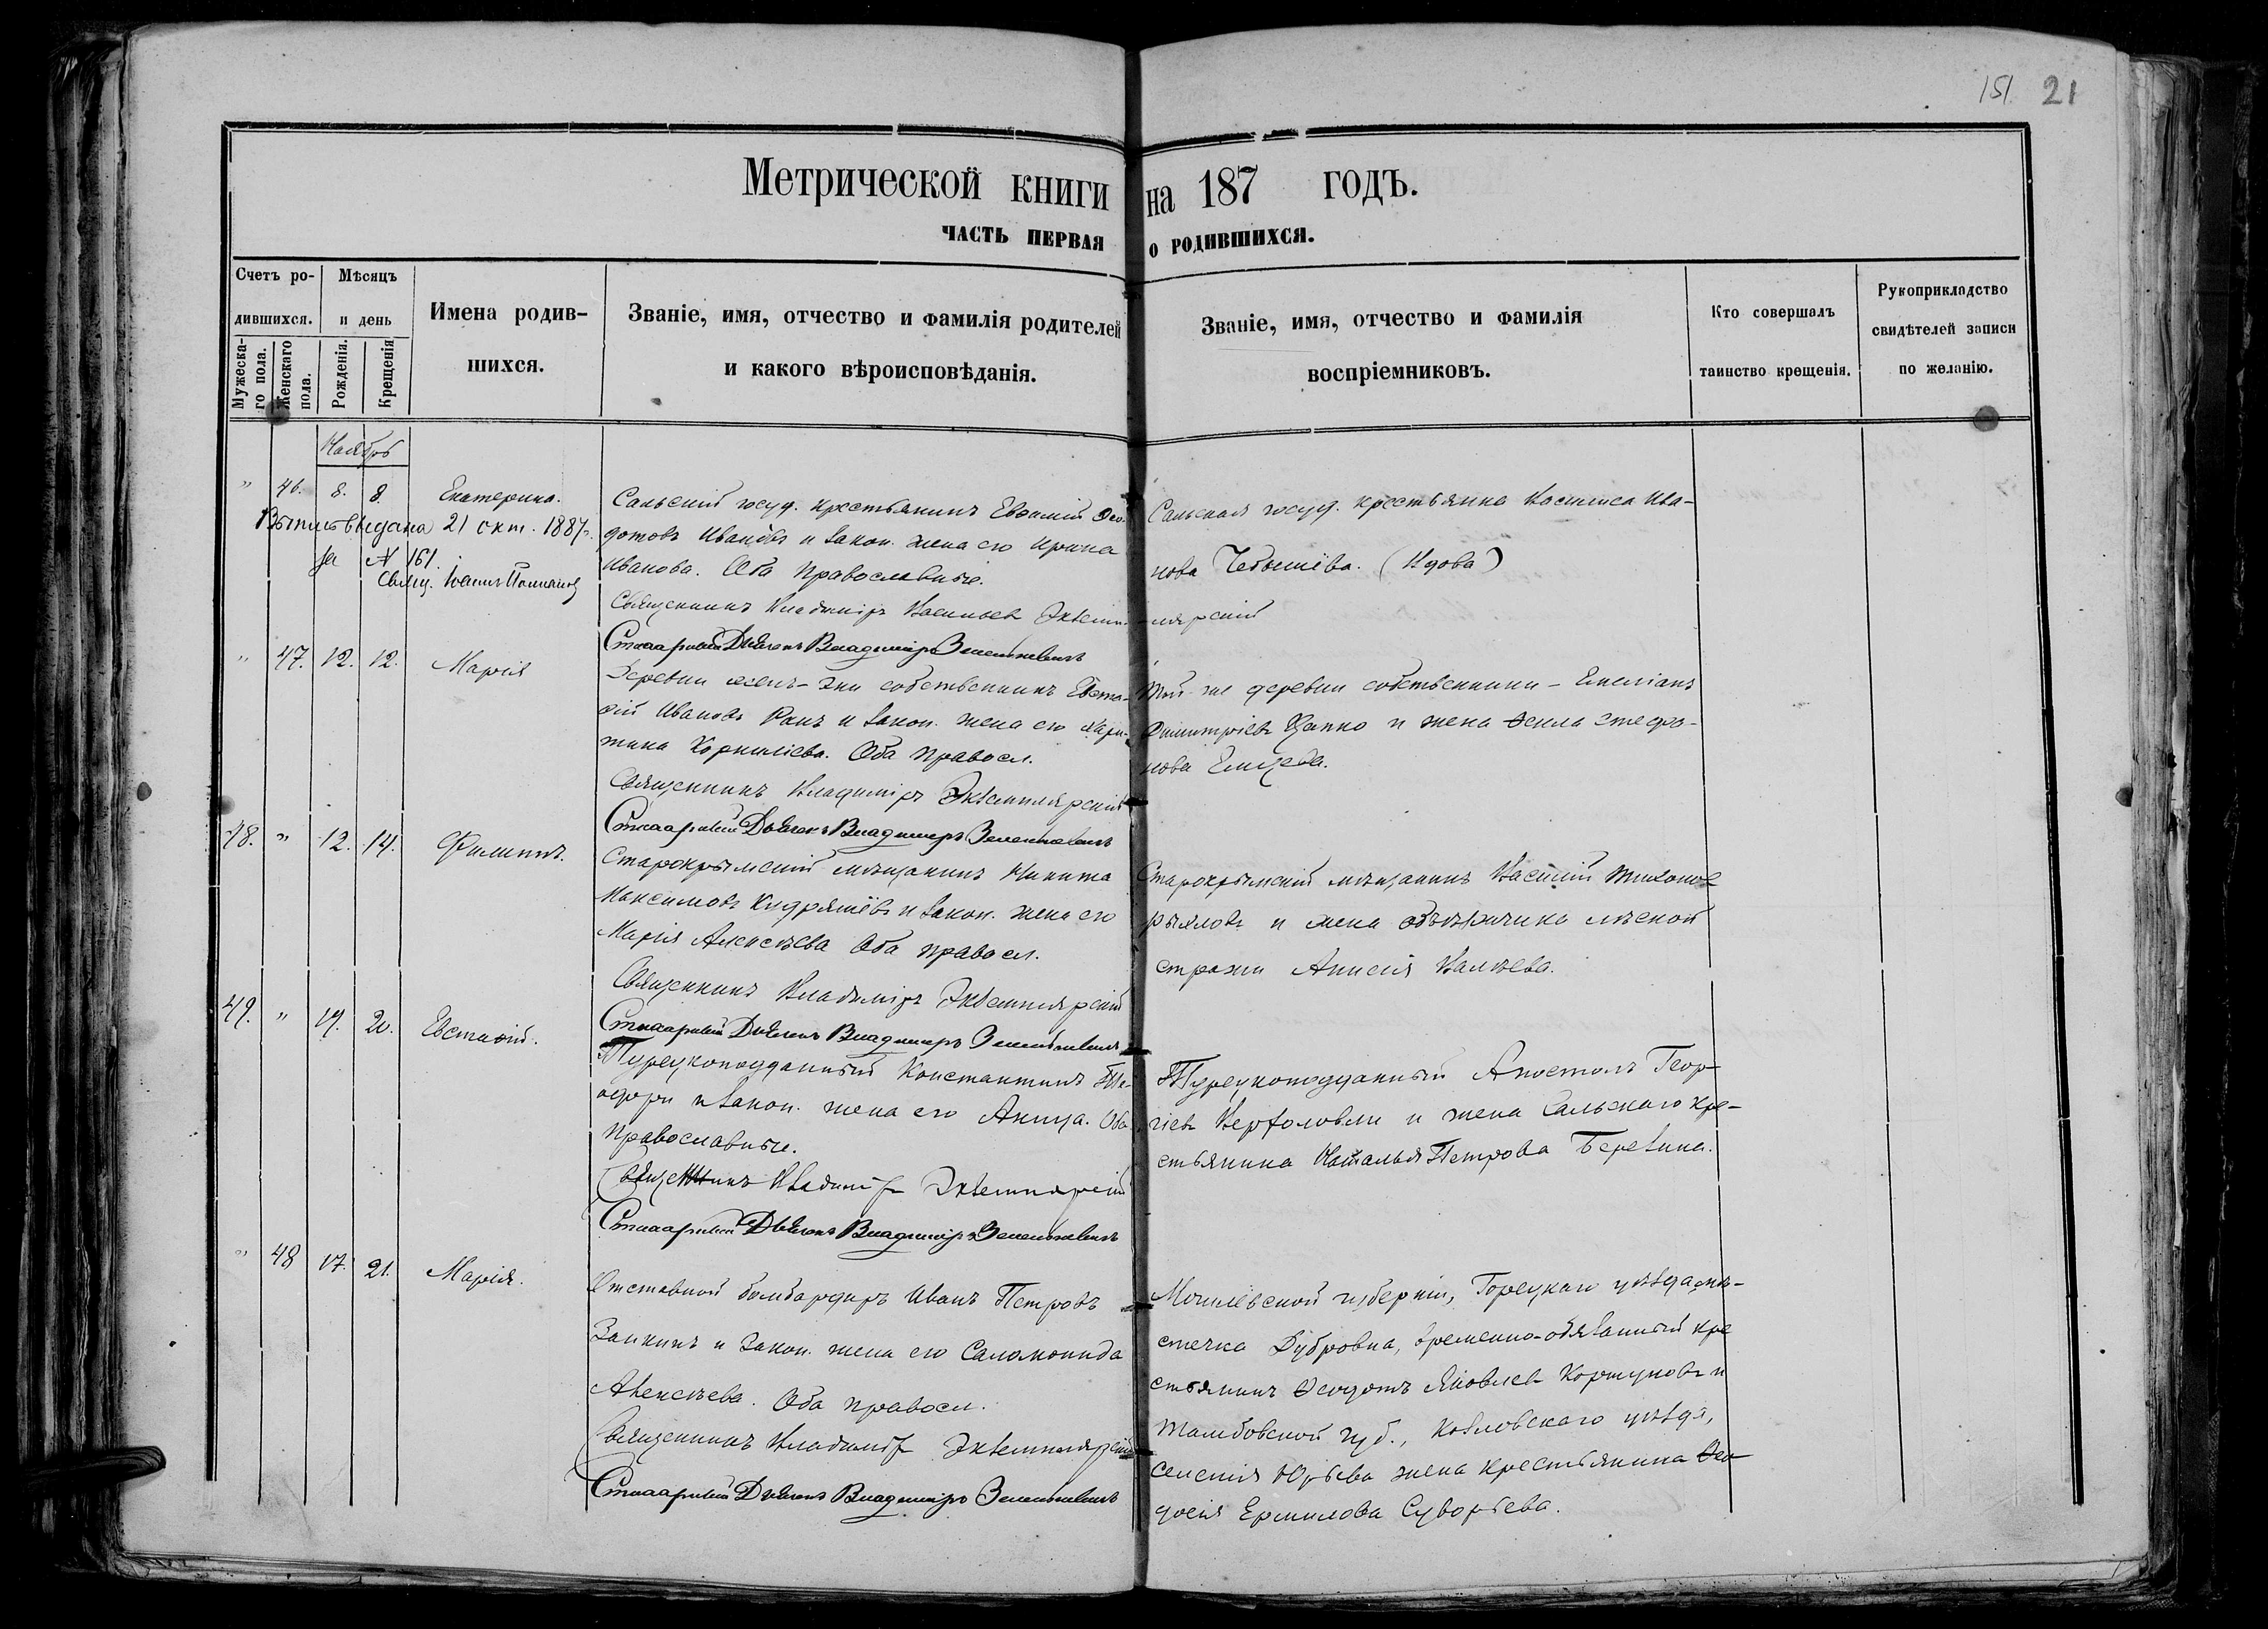 151. 21
Метрической книги на 187 годъ.
ЧАСТЬ ПЕРВАЯ О РОДИВШИХСЯ.
Счетъ ро-
дившихся.
Мужеска-
го пола.
Женскаго
пола.
Мѣсяцъ
и день
Рожденія.
Крещенія
Имена родив-
шихся.
Званіе, имя, отчество и фамилія родителей
и какого вѣроисповѣданія.
Званіе, имя, отчество и фамилія
воспріемниковъ.
Кто совершалъ
таинство крещенія.
Рукоприкладство
свидѣтелей записи
по желанію.
Ноябрь
" 46. 8. 8. Екатерина.
Выпись выдана 21 окт. 1887 г.
за № 161.
Свящ. Іоаннъ
Сальскій госуд. крестьянинъ Евѳимій Ѳео-
дотовъ Ивановъ и закон. жена его Ирина
Иванова. Оба православные.
Священникъ Владиміръ Васильевъ Экземплярскій
Стихарный Дьячекъ Владиміръ
Сальская госуд. крестьянка Василиса Ива-
нова Чебышёва. (Вдова)
" 47. 12. 12. Марія
Деревни собственникъ Евста-
ѳій Ивановъ и закон. жена его Хари-
тина Корниліева. Оба правосл.
Священникъ Владиміръ Экземплярскій
Стихарный Дьячекъ Владиміръ
Той-же деревни собственники - Емеліанъ
Димитріевъ Цапко и жена Ѳекла Стефа-
нова
48. " 12. 14. Филиппъ.
Старокрымскій мѣщанинъ Никита
Максимовъ Кудряшёвъ и закон. жена его
Марія Алексѣева Оба правосл.
Священникъ Владиміръ Экземплярскій
Стихарный Дьячекъ Владиміръ
Старокрымскій мѣщанинъ Василій Тихонов
и жена объѣздчика лѣсной
стражи Анисія
49. " 19. 20. Евстаѳій.
Турецкоподданный Константинъ Те-
одори и закон. жена его Аница. Оба
православные.
Священникъ Владиміръ Экземплярскій
Стихарный Дьячекъ Владиміръ
Турецкоподданный Апостолъ Геор-
гіевъ и жена Сальскаго кре-
стьянина Наталья Петрова Березина.
" 48 17. 21. Марія.
Отставной бомбардиръ Иванъ Петровъ
Заикинъ и закон. жена его Саломонида
Алексѣева. Оба правосл.
Священникъ Владиміръ Экземплярскій
Стихарный Дьячекъ Владиміръ
Могилёвской губерніи, Горецкаго уѣзда, мѣ-
стечка Дубровна, временно-обязанный кре
стьянинъ Ѳеодотъ Яковлевъ Коршуновъ и
Тамбовской губ., Козловскаго уѣзда,
селенія Юрьева жена крестьянина Ѳео-
досія Ермилова Суворьева.